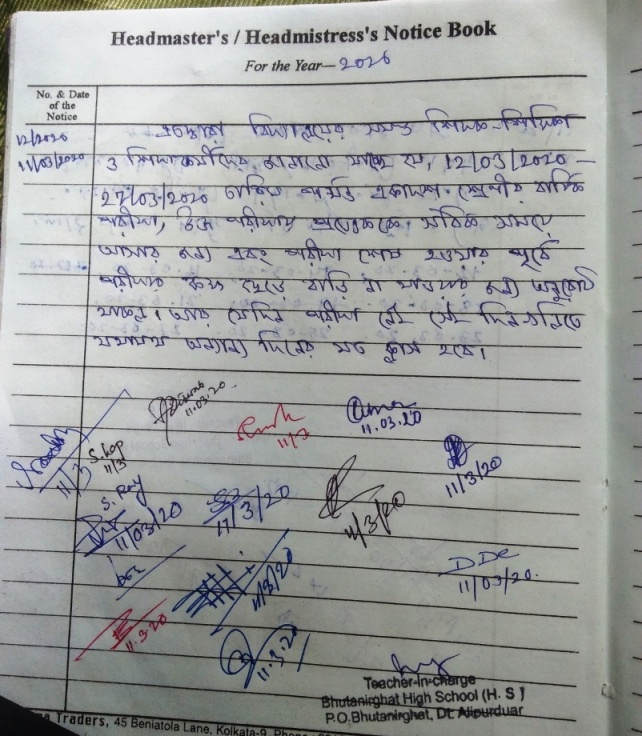 Headmaster's / Headmistress's Notice Book
For the Year—2020
No. & Date
of the
Notice
12/2020
11/03/2020
এতদ্বারা বিদ্যালয়ের সমস্ত শিক্ষক-শিক্ষিকা
ও শিক্ষাকর্মীদের জানানো যাচ্ছে যে, 12/03/2020 –
27/03/2020 তারিখ পর্যন্ত একাদশ শ্রেণীর বার্ষিক
পরীক্ষা, উক্ত পরীক্ষায় প্রত্যেককে সঠিক সময়ে
আসার জন্য এবং পরীক্ষা শেষ হওয়ার পূর্বে
পরীক্ষার কক্ষ ছেড়ে বাড়ি না যাওয়ার জন্য অনুরোধ
আর যেদিন পরীক্ষা নেই সেই দিন গুলিতে
যথাযথ অন্যান্য দিনের মত ক্লাস হবে।
11.03.20
11/3
11.03.20
11/3
S. Kop
11/3
11/3/20
S. Ray
11/03/20
11/3/20
11/3/20
11/3/20
D De
11/03/20.
11.3.20
11.3.20
Teacher-in-charge
Bhutanirghat High School (H. S)
P.O. Bhutanirghat, Dt. Alipurduar
Traders, 45 Beniatola Lane, Kolkata-9,